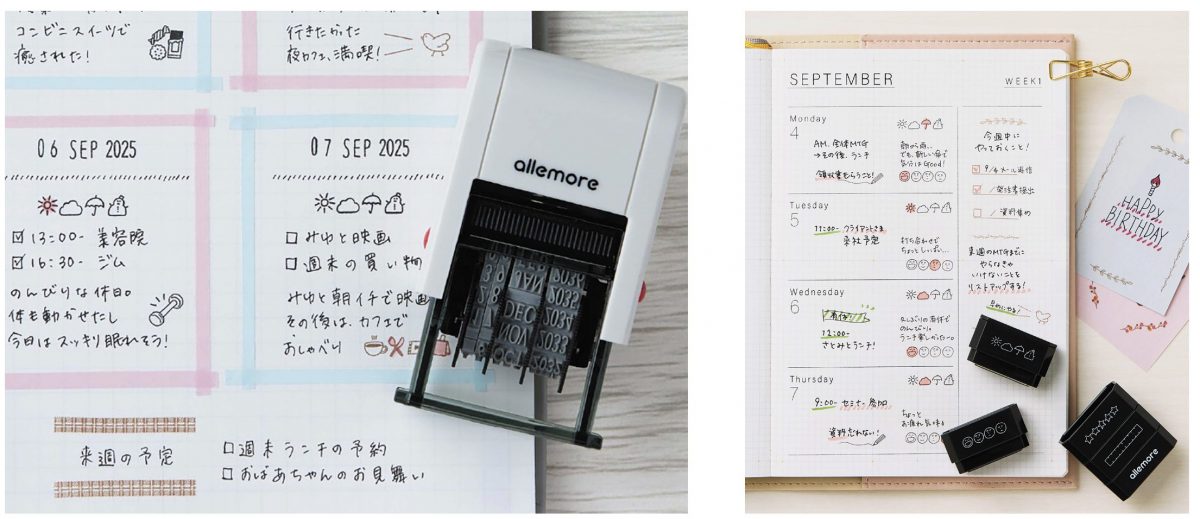 コンビニスイーツで
癒された!
行きたかった
夜カフェ、満喫!
06 SEP 2025
☑ 13:00- 美容院
☑ 16:30- ジム
のんびりな休日。
体も動かせたし
今日はスッキリ眠れそう!
07 SEP 2025
□ みゆと映画
□ 週末の買い物
みゆと朝イチで映画
その後は、カフェで
おしゃべり
来週の予定
□ 週末ランチの予約
□ おばあちゃんのお見舞い
allemore
JAN 2033
DEC 2032
NOV 2033
OCT 2032
SEPTEMBER
WEEK1
Monday
4
AM. 全体MTG
→その後、ランチ
領収書もらうこと!
Tuesday
5
11:00- クライアントさま
来社予定
打ち合わせで
ちょっとしっぱい…
Wednesday
6
有休
12:00-
さとみとランチ!
久しぶりの有休で
のんびり。
Thursday
7
9:00- セミナー参加
資料忘れない!
ちょっと
お疲れ気味
今週中に
やっておくこと!
☑ 9/4メール返信
来週のMTGまでに
やらなきゃ
いけないことを
リストアップする!
HAPPY
BIRTHDAY
allemore